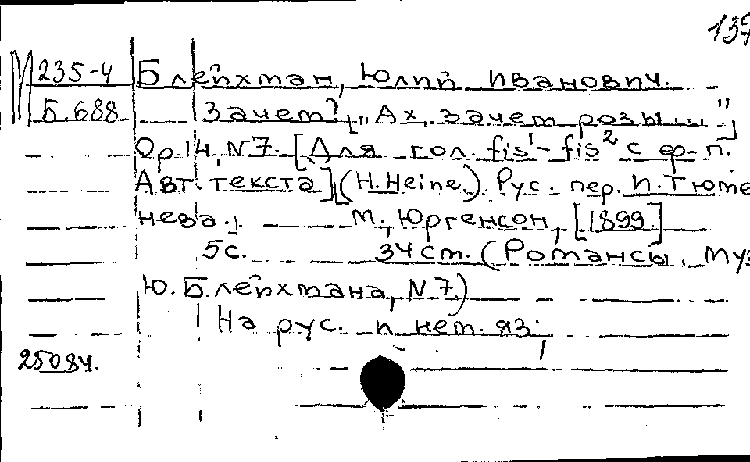 139
М 235-4 Блейхман, Юлий Иванович.
Б.688 Зачем? [„Ах, зачем розы..."]
Ор.14, N7. [Для гол. fis¹-fis² с ф-п.
Авт. текста] (H. Heine). Рус. пер. И. Тюме
нева.; М., Юргенсон, [1899]
5с. 34 см. (Романсы. Муз
Ю. Блейхмана, N7.)
На рус. и нем. яз.
25084.